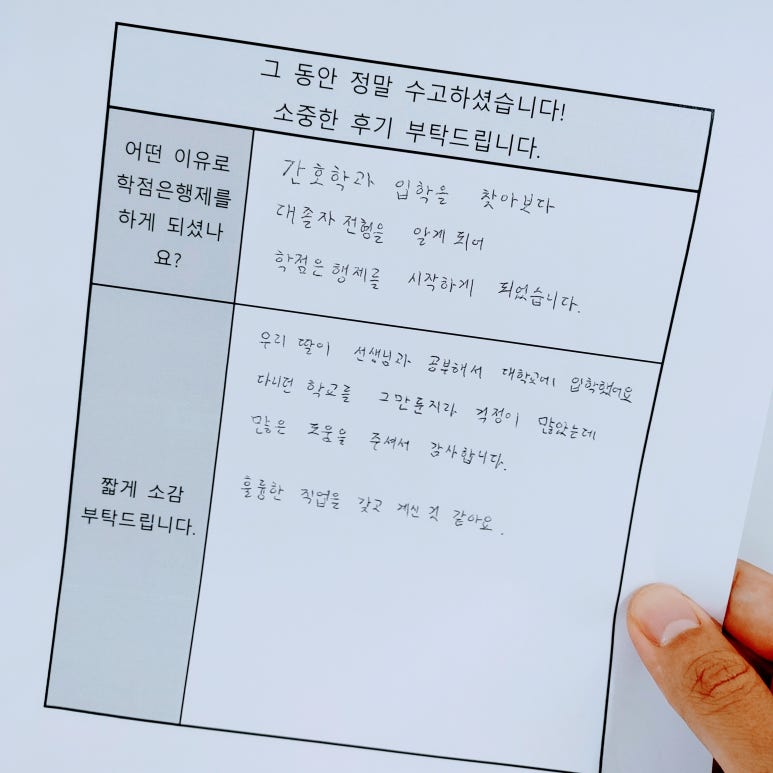 그 동안 정말 수고하셨습니다!
소중한 후기 부탁드립니다.
어떤 이유로
학점은행제를
하게 되셨나
요?
간호학과 입학을 찾아보다
대졸자전형을 알게 되어
학점은행제를 시작하게 되었습니다.
짧게 소감
부탁드립니다.
우리 딸이 선생님과 공부해서 대학교에 입학했어요
다니던 학교를 그만둔지라 걱정이 많았는데
많은 도움을 주셔서 감사합니다.
훌륭한 직업을 갖고 계신 것 같아요.